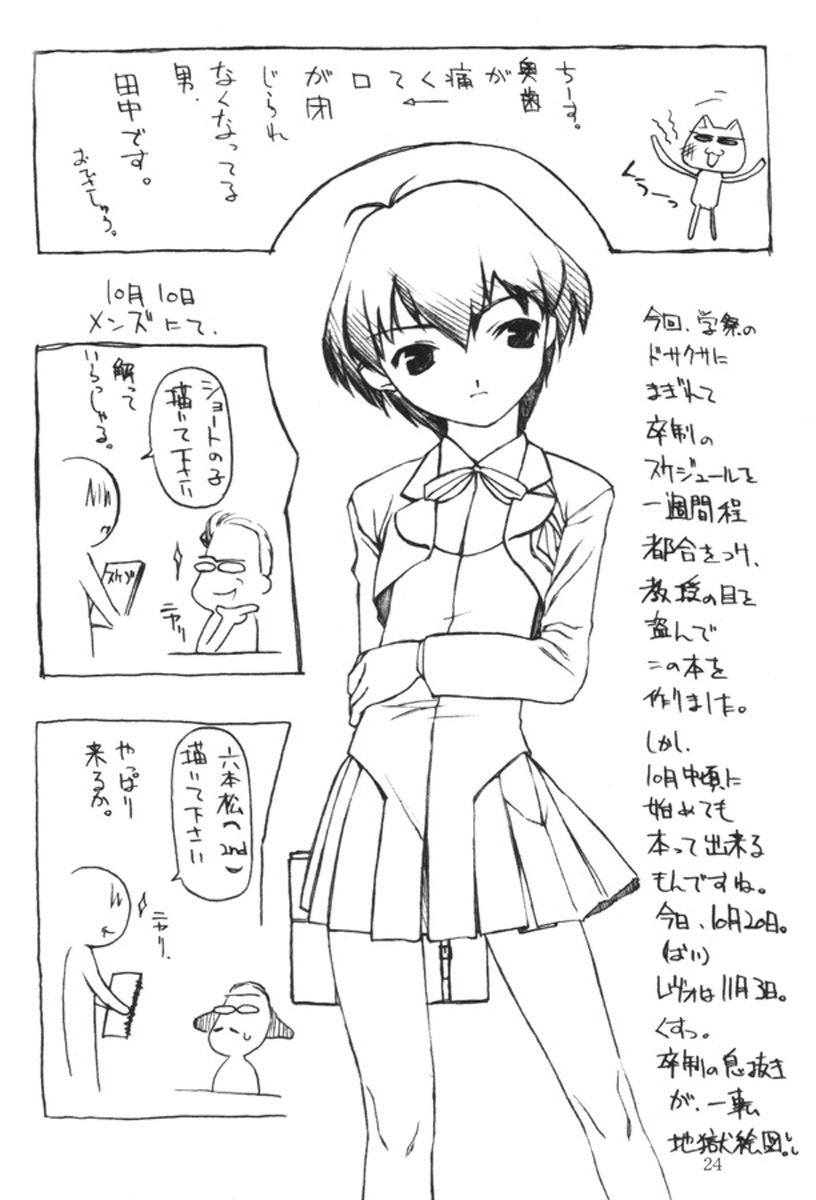 ちーす。
奥歯
が痛くて口
が閉
じられ
なくなってる
男、
田中です。
おひさしゅう。
くうーっ
10月10日
メンズにて、
解って
いらっしゃる。
ショートの子
描いて下さい
スケブ
ニヤリ
やっぱり
来るか。
六本松(2nd)
描いて下さい
ニヤリ。
今回、学祭の
ドサクサに
まぎれて
卒制の
スケジュールを
一週間程
都合をつけ、
教授の目を
盗んで
この本を
作りました。
しかし、
10月中頃に
始めても
本って出来る
もんですね。
今日、10月20日。
(ばい)
レヴォは11月3日。
くすっ。
卒制の息抜き
が、一転
地獄絵図。
24